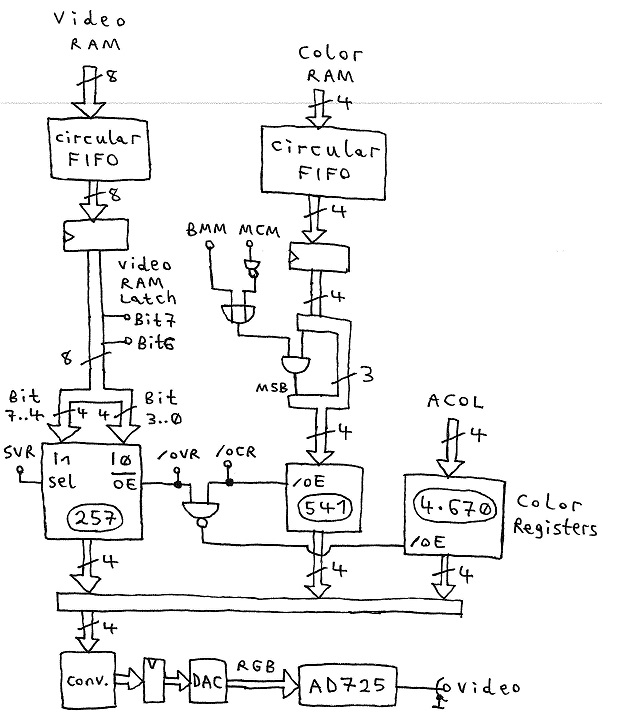 Video
RAM
8
Color
RAM
4
circular
FIFO
circular
FIFO
8
4
BMM MCM
Video
RAM
Latch
Bit7
Bit6
4
8
MSB
3
Bit
7..4
4 4
Bit
3..0
ACOL
4
4
SVR
I1 I0
sel OE
257
/OVR /OCR
/OE
541
4.670
/OE
Color
Registers
4
4
4
4
conv.
V
DAC
RGB
AD725
Video